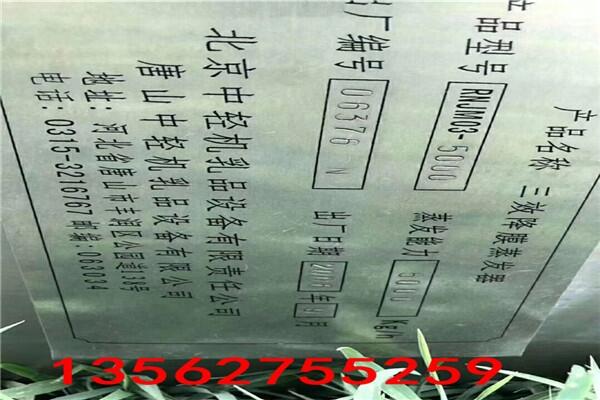 产品名称 三效降膜蒸发器
产品型号 RNJM03-5000 蒸发能力 Kg/h
出厂编号 06376 N 出厂日期 年 月
北京中轻机乳品设备有限责任公司
唐山中轻机乳品设备有限公司
地址: 河北省唐山市丰润区公园道138号
电话: 0315-3216767 邮编: 063034
13562755259